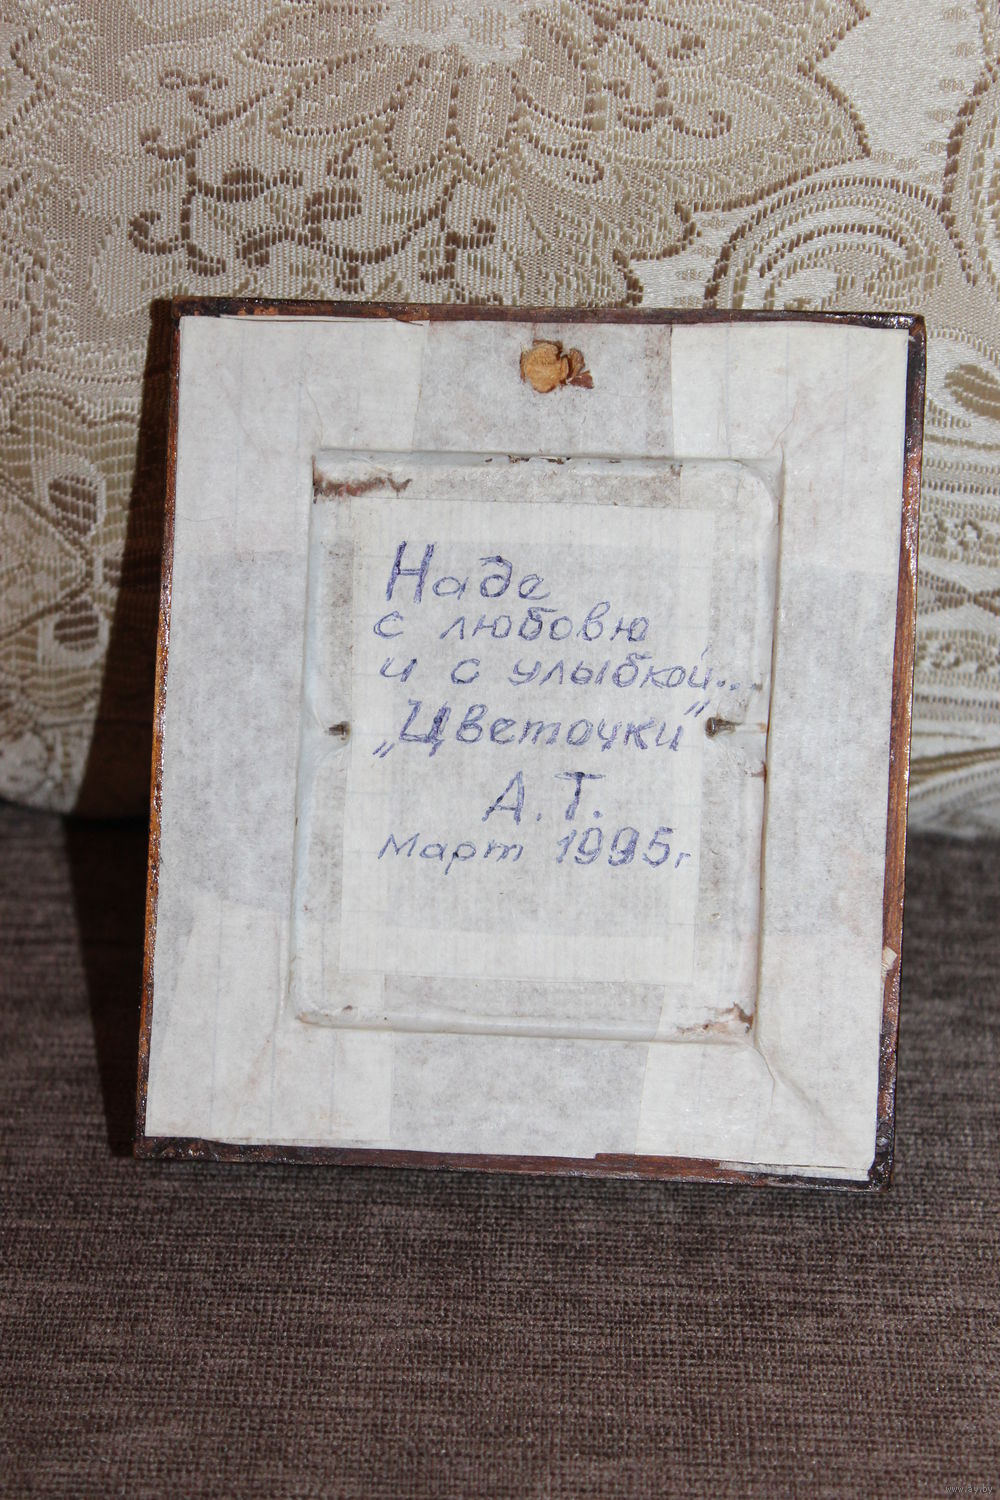 Наде
с любовю
и с улыбкой...
„Цветочки"
А.Т.
Март 1995г
www.ay.by